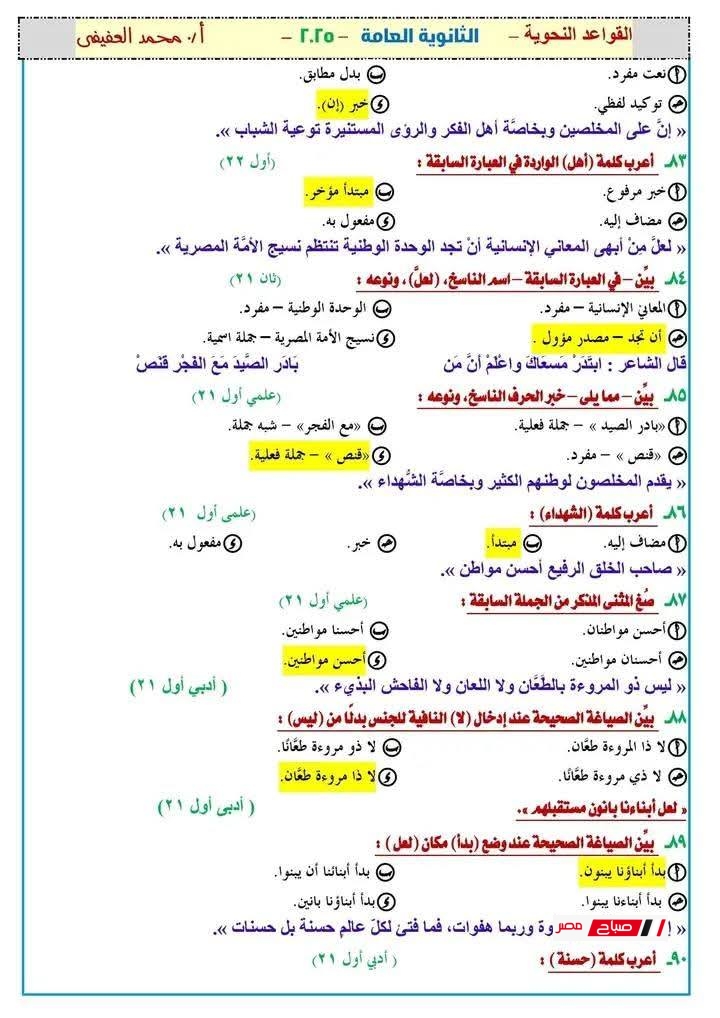 القواعد النحوية – الثانوية العامة – ٢٠٢٥ – أ/ محمد العفيفى
أ نعت مفرد. ب بدل مطابق.
جـ توكيد لفظي. د خبر (إن).
« إنَّ على المخلصين وبخاصَّة أهل الفكر والرؤى المستنيرة توعية الشباب ».
٨٣ـ أعرب كلمة (أهل) الواردة في العبارة السابقة : (أول ٢٢)
أ خبر مرفوع. ب مبتدأ مؤخر.
جـ مضاف إليه. د مفعول به.
« لعلَّ مِنْ أبهى المعاني الإنسانية أنْ تجد الوحدة الوطنية تنتظم نسيج الأمَّة المصرية ».
٨٤ـ بيِّن – في العبارة السابقة – اسم الناسخ، (لعلَّ) ، ونوعه : (ثان ٢١)
أ المعاني الإنسانية – مفرد. ب الوحدة الوطنية – مفرد.
جـ أن تجد – مصدر مؤول . د نسيج الأمة المصرية – جملة اسمية.
قال الشاعر : ابتَدَرْ مَسعَاكَ واعْلمْ أنَّ مَن بَادَر الصَّيدَ مَعَ الفَجْر قنَصْ
٨٥ـ بيِّن – مما يلى – خبر الحرف الناسخ، ونوعه : (علمي أول ٢١)
أ «بادر الصيد » – جملة فعلية. ب «مع الفجر» – شبه جملة.
جـ «قنص » – مفرد. د «قنص » – جملة فعلية.
« يقدم المخلصون لوطنهم الكثير وبخاصَّة الشُّهداء ».
٨٦ـ أعرب كلمة (الشهداء) : (علمى أول ٢١)
أ مضاف إليه. ب مبتدأ. جـ خبر. د مفعول به.
« صاحب الخلق الرفيع أحسن مواطن ».
٨٧ـ صُغ المثنى المذكر من الجملة السابقة : (علمي أول ٢١)
أ أحسن مواطنان. ب أحسنا مواطنين.
جـ أحسنان مواطنين. د أحسن مواطنين.
« ليس ذو المروءة بالطَّعَّان ولا اللعان ولا الفاحش البذيء ». ( أدبي أول ٢١)
٨٨ـ بيِّن الصياغة الصحيحة عند إدخال (لا) النافية للجنس بدلًا من (ليس) :
أ لا ذا المروءة طعَّان. ب لا ذو مروءة طعَّانًا.
جـ لا ذي مروءة طعَّانًا. د لا ذا مروءة طعَّان.
« لعل أبناءنا بانون مستقبلهم ». ( أدبى أول ٢١)
٨٩ـ بيِّن الصياغة الصحيحة عند وضع (بدأ) مكان (لعل ) :
أ بدأ أبناؤنا يبنون. ب بدأ أبنائنا أن يبنوا.
جـ بدأ أبناءنا يبنوا. د بدأ أبناؤنا بانين.
وة وربما هفوات، فما فتئ لكلّ عالم حسنة بل حسنات ».
صباح مصر
٩٠ـ أعرب كلمة (حسنة) : ( أدبي أول ٢١)